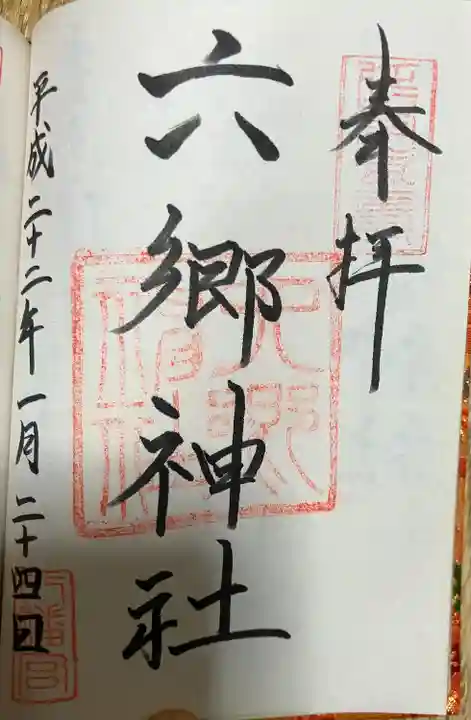 奉拝
六郷神社
平成二十二年一月二十四日
六郷神社